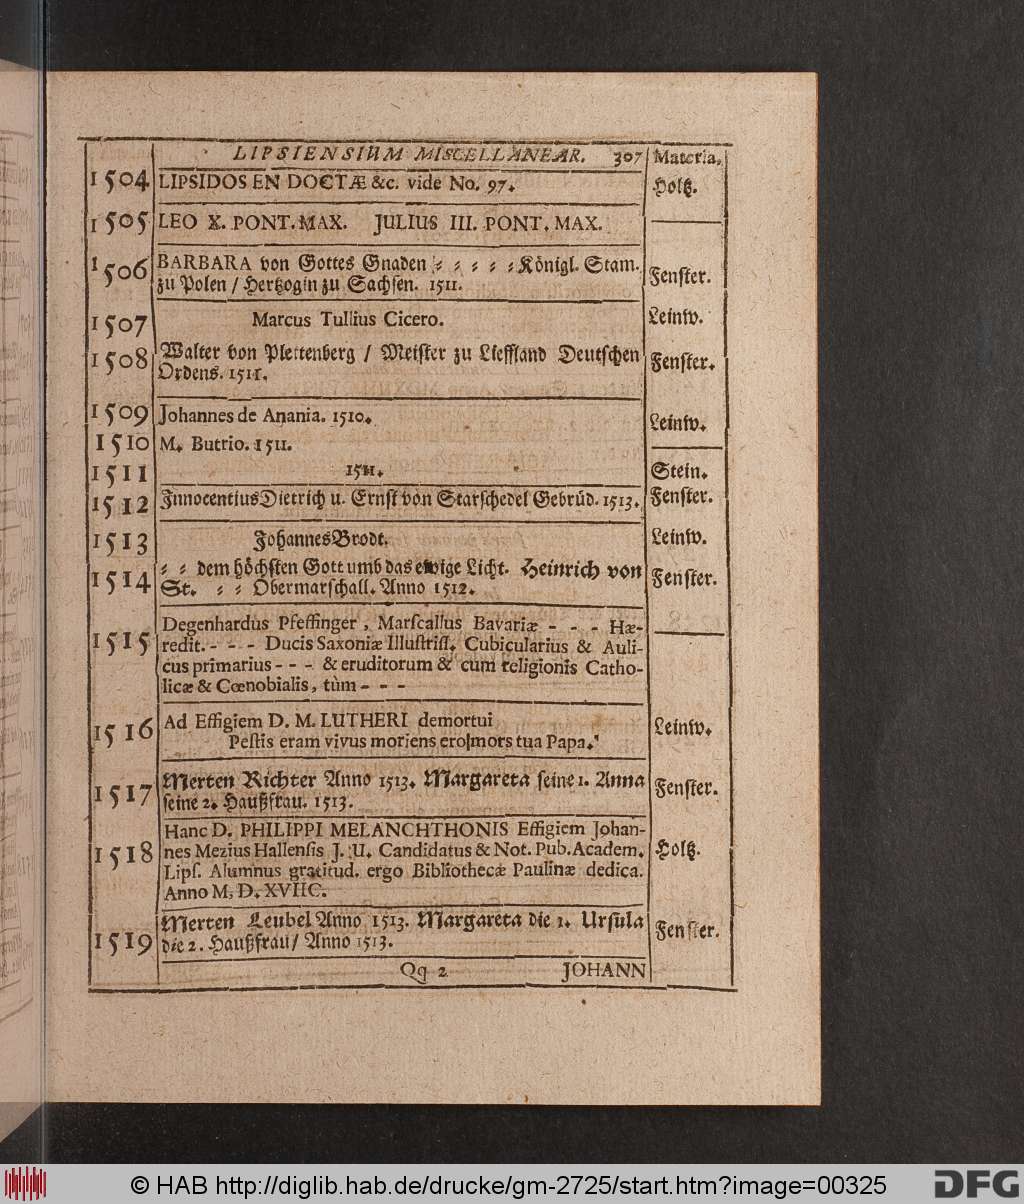 LIPSIENSIUM MISCELLANEAR. 307 Materia.
1504 LIPSIDOS EN DOCTÆ &c. vide No. 97. Holtz.
1505 LEO X. PONT. MAX. JULIUS III. PONT. MAX.
1506 BARBARA von Gottes Gnaden ⸗ ⸗ ⸗ ⸗ ⸗ Königl. Stam. Fenster.
zu Polen / Hertzogin zu Sachsen. 1511.
1507 Marcus Tullius Cicero. Leinw.
1508 Walter von Plettenberg / Meister zu Lieffland Deutschen Fenster.
Ordens. 1511.
1509 Johannes de Anania. 1510. Leinw.
1510 M. Butrio. 1511.
1511 1511. Stein.
1512 Innocentius Dietrich u. Ernst von Starschedel Gebrüd. 1513. Fenster.
1513 Johannes Brodt. Leinw.
1514 ⸗ ⸗ dem höchsten Gott umb das ewige Licht. Heinrich von Fenster.
St. ⸗ ⸗ Obermarschall. Anno 1512.
1515 Degenhardus Pfeffinger, Marſcallus Bavariæ - - - Hæ-
redit. - - - Ducis Saxoniæ Illuſtriſſ. Cubicularius & Auli-
cus primarius - - - & eruditorum & cum religionis Catho-
licæ & Cœnobialis, tùm - - -
1516 Ad Effigiem D. M. LUTHERI demortui Leinw.
Peſtis eram vivus moriens ero mors tua Papa.
1517 Merten Richter Anno 1513. Margareta seine 1. Anna Fenster.
seine 2. Haußfrau. 1513.
1518 Hanc D. PHILIPPI MELANCHTHONIS Effigiem Johan- Holtz.
nes Mezius Hallenſis J. U. Candidatus & Not. Pub. Academ.
Lipſ. Alumnus gratitud. ergo Bibliothecæ Paulinæ dedica.
Anno M. D. XVIIC.
1519 Merten Leubel Anno 1513. Margareta die 1. Ursula Fenster.
die 2. Haußfrau / Anno 1513.
Qq 2 JOHANN
© HAB http://diglib.hab.de/drucke/gm-2725/start.htm?image=00325
DFG